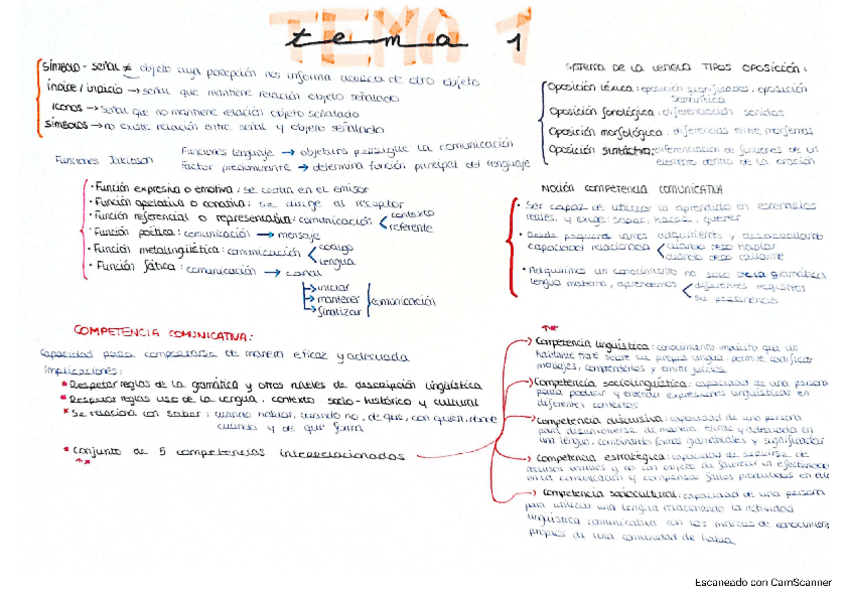 TEMA 1
tema 1
SÍMBOLO - señal ≠ objeto cuya percepción nos informa acerca de otro objeto
índice / indicio → señal que mantiene relación objeto señalado
iconos → señal que no mantiene relación objeto señalado
símbolos → no existe relación entre señal y objeto señalado
Funciones Jakobson
Funciones lenguaje → objetivos persigue la comunicación
Factor predominante → determina función principal del lenguaje
• Función expresiva o emotiva: se centra en el emisor
• Función apelativa o conativa: se dirige al receptor
• Función referencial o representativa: comunicación < contexto
referente
• Función poética: comunicación → mensaje
• Función metalingüística: comunicación < código
lengua
• Función fática: comunicación → canal
→ iniciar
→ mantener
→ finalizar
comunicación
COMPETENCIA COMUNICATIVA:
Capacidad para comportarse de manera eficaz y adecuada
Implicaciones:
* Respetar reglas de la gramática y otros niveles de descripción lingüística
* Respetar reglas uso de la lengua, contexto socio-histórico y cultural
* Se relaciona con saber: cuando hablar, cuando no, de que, con quien, donde
cuando y de que forma
* Conjunto de 5 competencias interrelacionadas
**
SISTEMA DE LA LENGUA TIPOS OPOSICIÓN:
Oposición léxica: oposición significados, oposición
semántica
Oposición fonológica: diferenciación sonidos
Oposición morfológica: diferencias entre morfemas
Oposición sintáctica: diferenciación de funciones de un
elemento dentro de la oración
NOCIÓN COMPETENCIA COMUNICATIVA
• Ser capaz de utilizar lo aprendido en escenarios
reales, y exige: saber, hacer, querer
• Desde pequeños vamos adquiriendo y desarrollando
capacidad relacionada < cuando debo hablar
cuando debo callarme
• Adquirimos un conocimiento no solo de la gramática
lengua materna, aprendemos < diferentes registros
su pertenencia
**
Competencia lingüística: conocimiento implícito que un
hablante tiene sobre su propia lengua. permite codificar
mensajes, comprenderlos y emitir juicios
Competencia sociolingüística: capacidad de una persona
para producir y entender expresiones lingüísticas en
diferentes contextos
Competencia discursiva: capacidad de una persona
para desenvolverse de manera eficaz y adecuada en
una lengua, combinando formas gramaticales y significados
Competencia estratégica: capacidad de servirse de
recursos verbales y no con objeto de favorecer la efectividad
en la comunicación y compensar fallos producidos en ella
Competencia sociocultural: capacidad de una persona
para utilizar una lengua relacionando la actividad
lingüística comunicativa en los marcos de conocimiento
propios de una comunidad de habla.
Escaneado con CamScanner